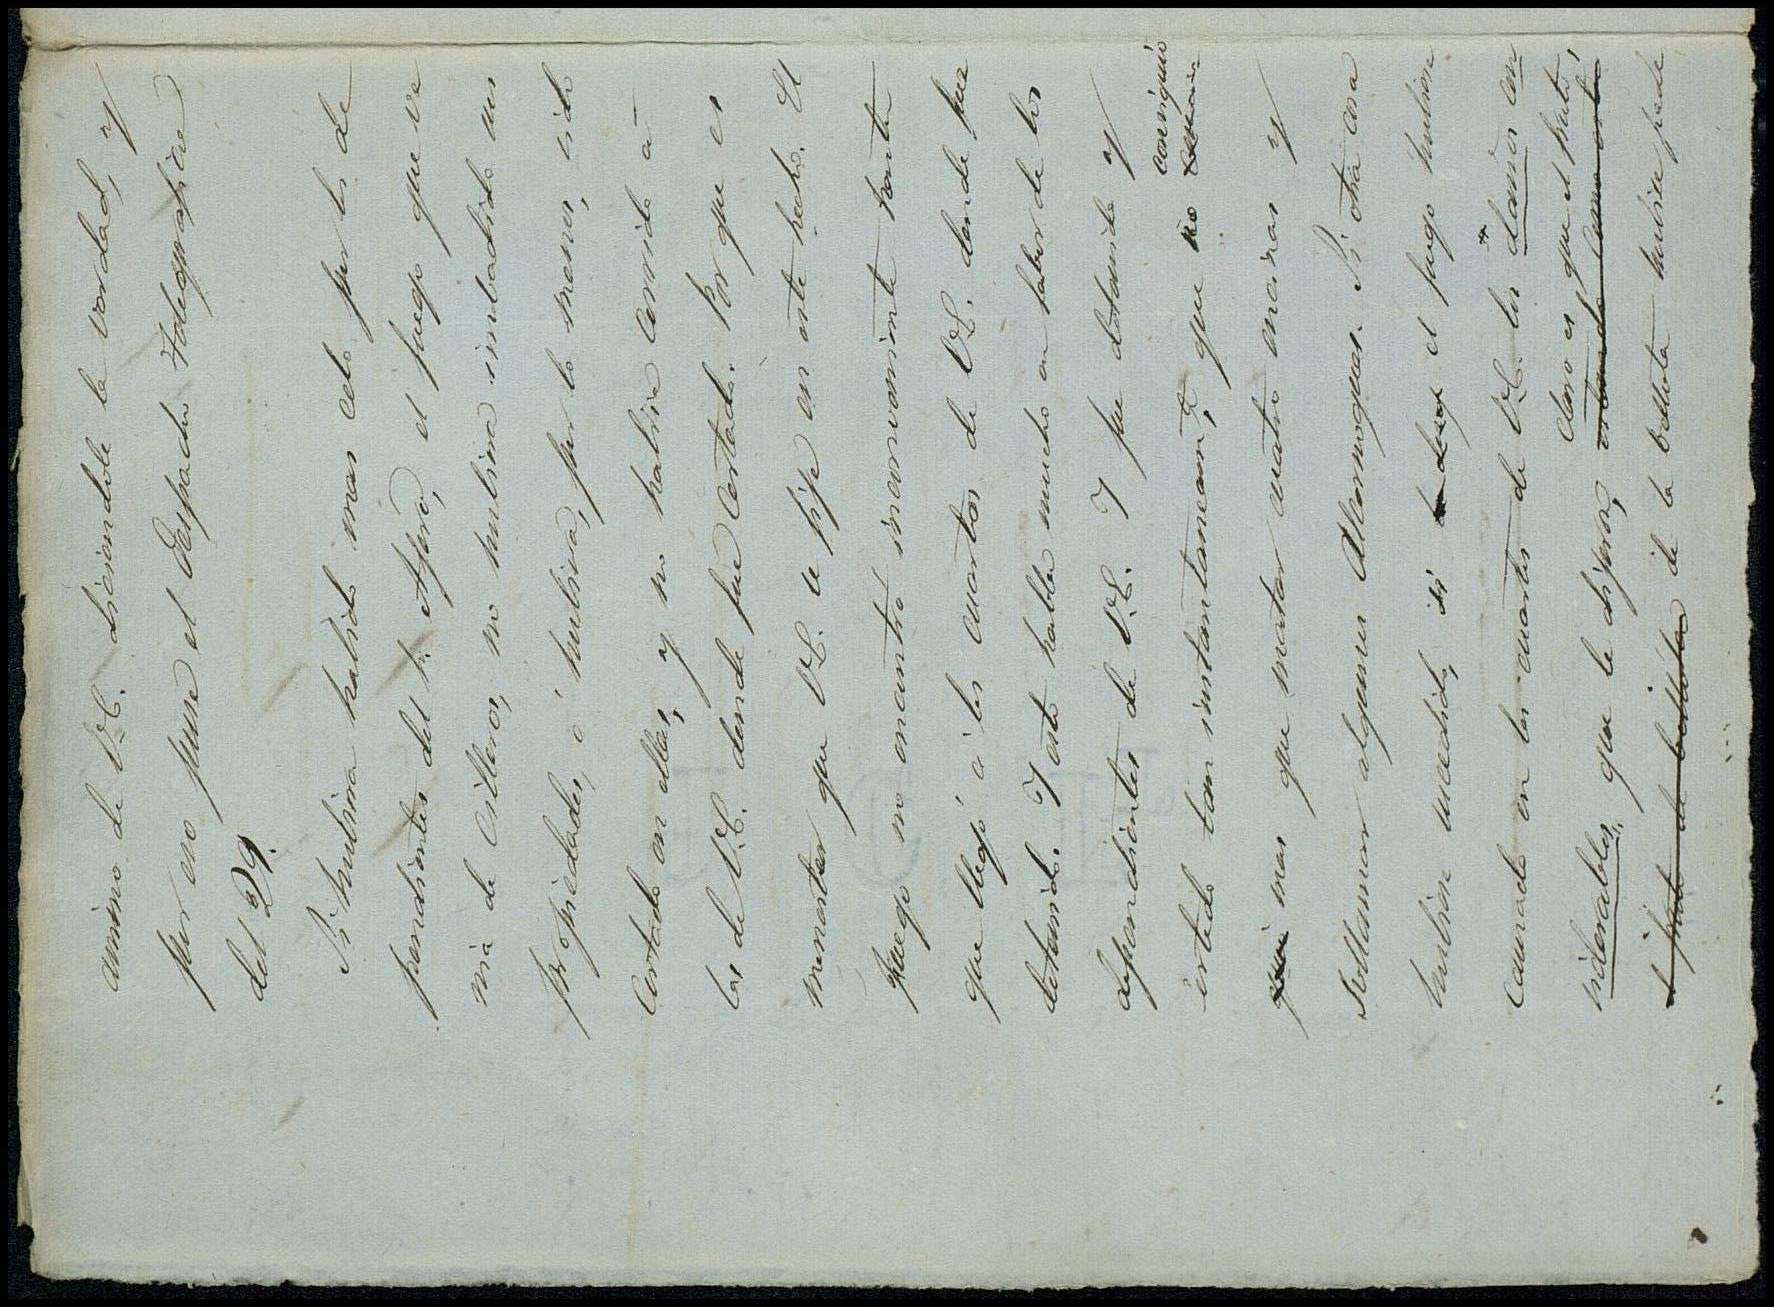 animo de V.E. diciendole la verdad, y
por eso puse el despacho telegrafico
del 29.
Si hubiera habido mas celo por los de
pendientes del Sr. el fuego que ve
nia de Cilleros, no hubiera imbadido sus
propiedades, ó hubiera, por lo menos, sido
cortado en ellas, y no habria corrido á
las de V.E. donde fue cortado. Por que es
menester que V.E. se fije en este hecho. El
fuego no encontró inconveniente hasta
que llegó á los cuartos de V.E. donde fue
detenido. Y esto habla mucho en fabor de los
dependientes de V.E. Y fue detenido y
cortado tan instantaneamte, que no consiguió
mas que matar cuatro encinas y
sollamar algunos Alcornoques. Si otra cosa
hubiere sucedido, si el fuego hubiere
causado en los cuartos de V.E. los "daños con
siderables" que le dijeron, claro es que el fruto,
de la bellota hubiere pade